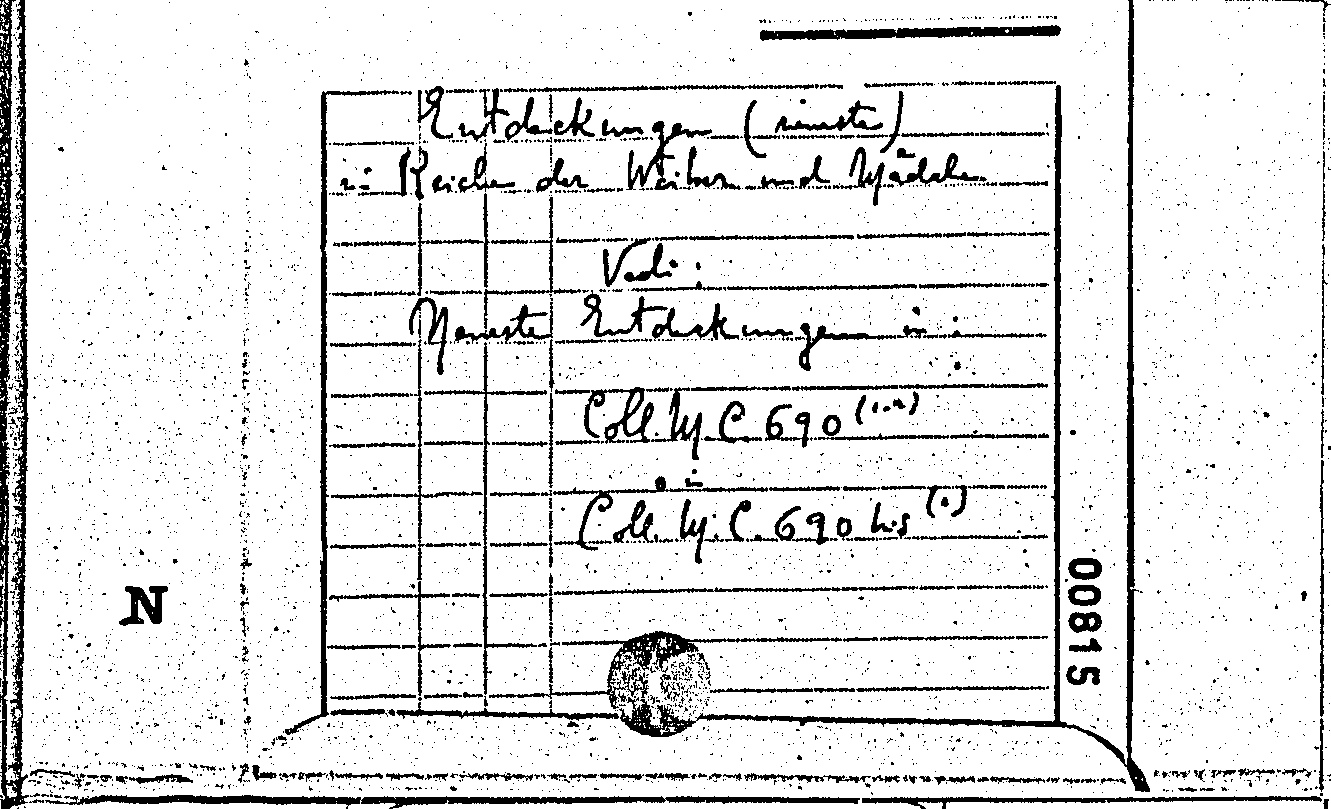 Entdeckungen (neueste)
im Reiche der Weiber und Mädchen
Vedi:
Neueste Entdeckungen in:
Coll. M. C. 690 (1-2)
e in
Coll. M. C. 690 bis (1)
N
00815